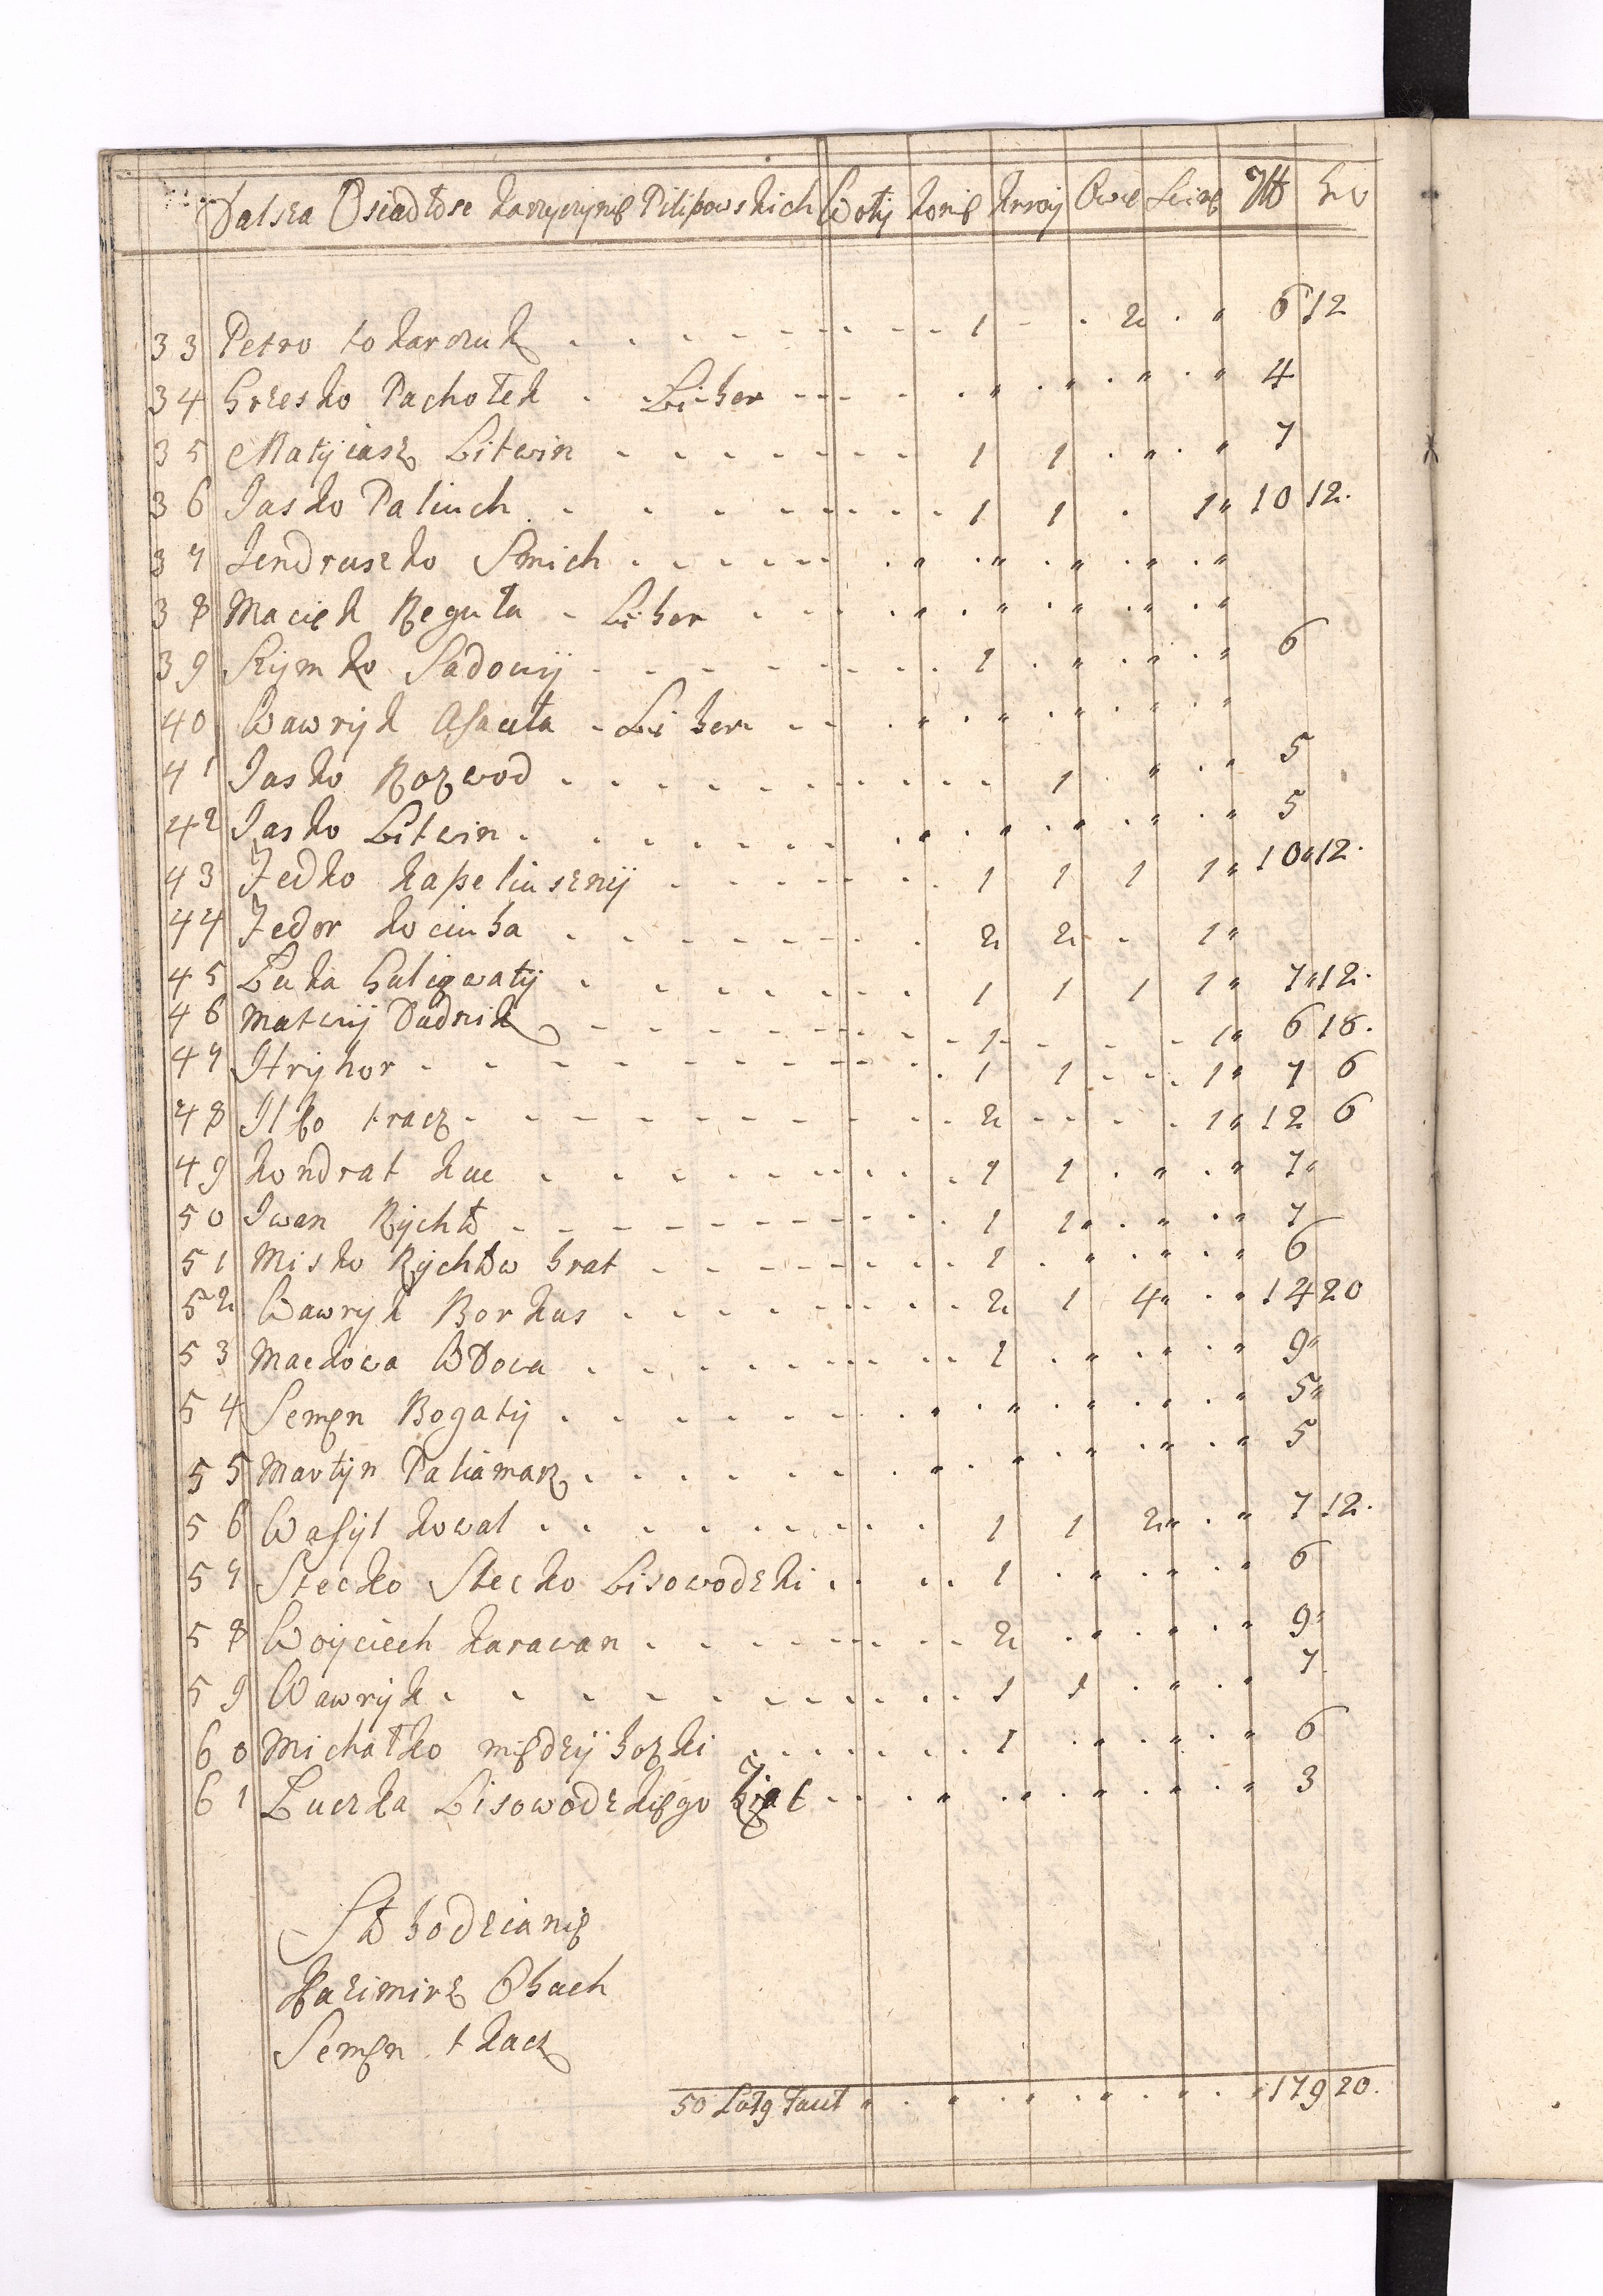 Dalsza Osiadłosc Karczycznie Pilipowskich Woły Konie Krowy Owce Swinie Złł Gro
33 Petro tokarczuk 1 2 6 12
34 Hresko Pachołek Liber 4
35 Matyiasz Litwin 1 1 7
36 Jasko Paliuch 1 1 1 10 12
37 Jendruszko Smich
38 Maciek Reguła Liber
39 Szymko Sadowy 1 6
40 Wawryk Asauła Liber
41 Jasko Rozwod 1 5
42 Jasko Litwin 5
43 Fedko Kapeliuszny 1 1 1 1 10 12
44 Fedor Kociuba 2 2 1
45 Luka 1 1 1 1 7 12
46 Matwij Dudnik 1 1 6 18
47 Hryhor 1 1 1 7 6
48 Ilko tracz 2 1 12 6
49 Kondrat Kuc 1 1 7
50 Iwan Rychło 1 1 7
51 Misko Rychłow brat 1 6
52 Wawryk Borkus 2 1 4 14 20
53 Mackowa Wdowa 1 9
54 Semen Bogaty 5
55 Martyn Paliamarz 5
56 Wasyl Kowal 1 1 2 7 12
57 Stecko Stecko Lisowodzki 1 6
58 Woyciech Karawan 2 9
59 Wawryk 1 1 7
60 Michałko miedzybozki 1 6
61 Łuczka Lisowodzkiego Ziat 3
Słobodzianie
Kazimirz Obuch
Semen tkacz
50 Latg facit 179 20